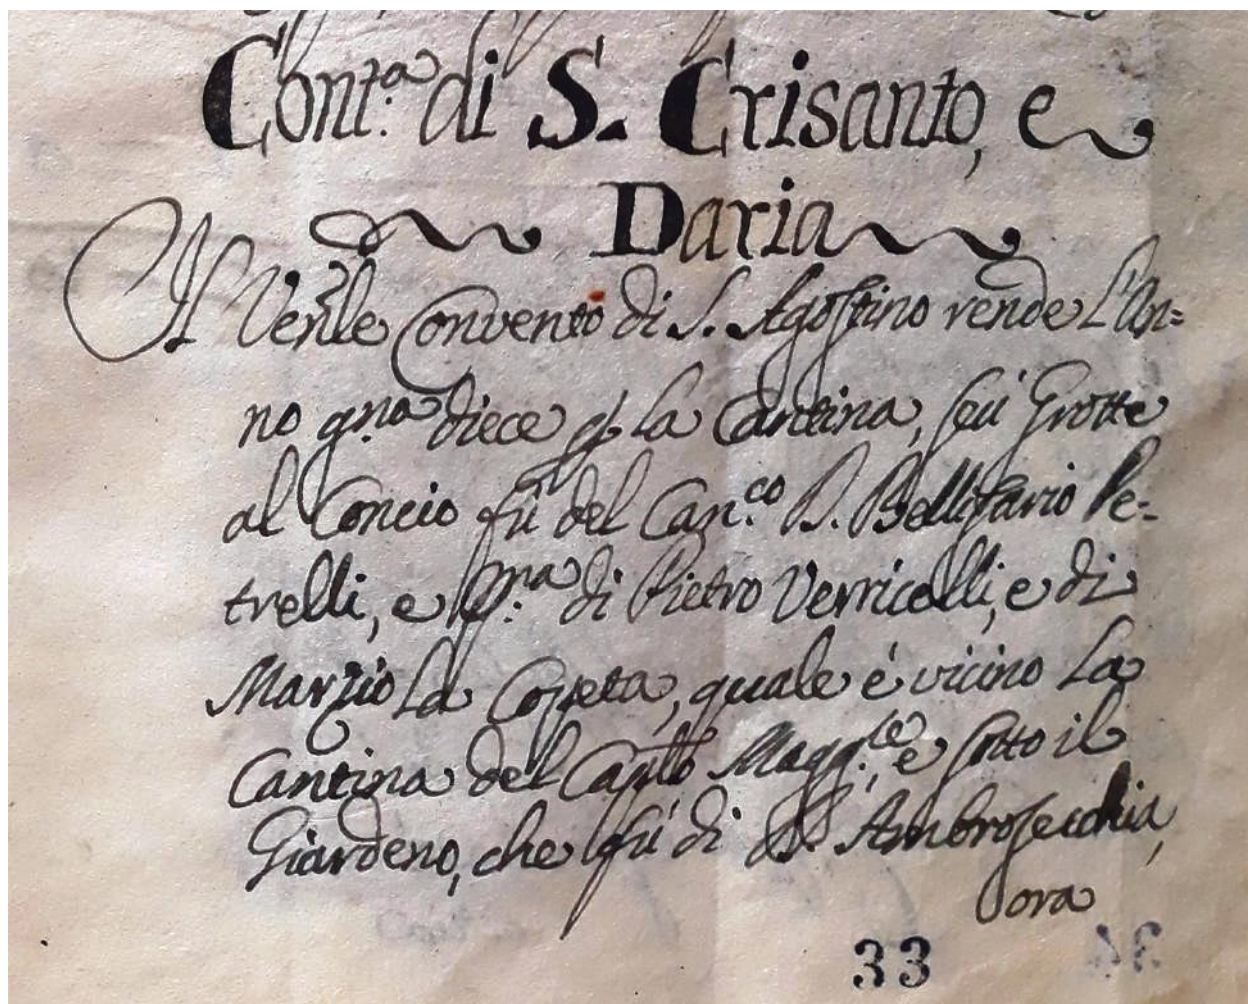 Cont.a di S. Crisanto, e
Daria
Il Ven:le Convento di S. Agostino rende l'An=
no gr.na diece p la Cantina, seù Grotte
al Concio fù del Can.co D. Bellisario Pe=
trelli, e p.ma di Pietro Verricelli, e di
Marzio La, quale è vicino La
Cantina del Cap.lo Magg.le, e sotto il
Giardeno, che fù di D. Ambrosecchia,
ora
33
34